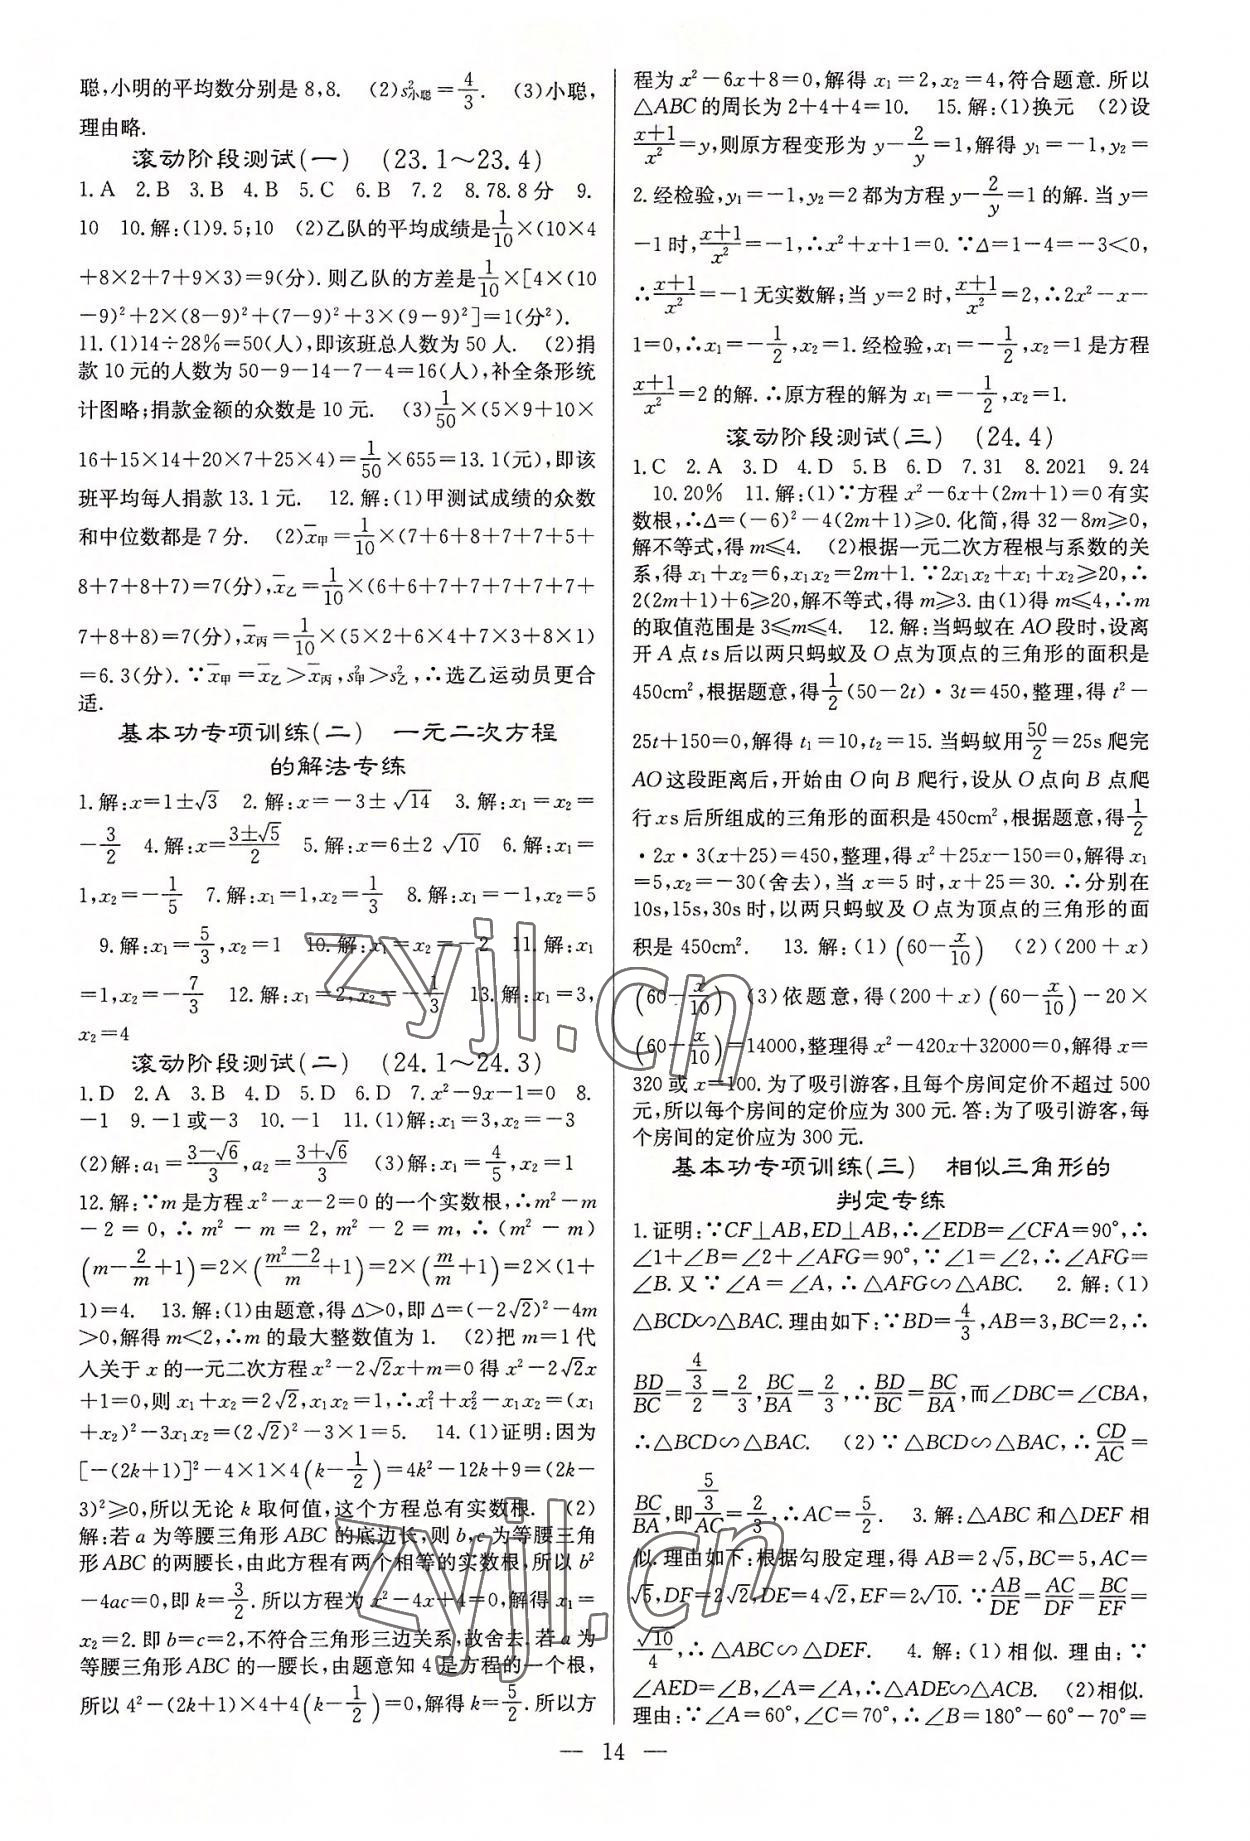 聪,小明的平均数分别是8,8. (2)s²小聪=4/3. (3)小聪,
理由略.
滚动阶段测试(一) (23.1～23.4)
1.A 2.B 3.B 4.B 5.C 6.B 7.2 8.78.8分 9.
10 10.解:(1)9.5;10 (2)乙队的平均成绩是1/10×(10×4
+8×2+7+9×3)=9(分).则乙队的方差是1/10×[4×(10
-9)²+2×(8-9)²+(7-9)²+3×(9-9)²]=1(分²).
11.(1)14÷28%=50(人),即该班总人数为50人. (2)捐
款10元的人数为50-9-14-7-4=16(人),补全条形统
计图略;捐款金额的众数是10元. (3)1/50×(5×9+10×
16+15×14+20×7+25×4)=1/50×655=13.1(元),即该
班平均每人捐款13.1元. 12.解:(1)甲测试成绩的众数
和中位数都是7分. (2)x̄甲=1/10×(7+6+8+7+7+5+
8+7+8+7)=7(分),x̄乙=1/10×(6+6+7+7+7+7+7+
7+8+8)=7(分),x̄丙=1/10×(5×2+6×4+7×3+8×1)
=6.3(分).∵x̄甲=x̄乙>x̄丙,s²甲>s²乙,∴选乙运动员更合
适.
基本功专项训练(二) 一元二次方程
的解法专练
1.解:x=1±√3 2.解:x=-3±√14 3.解:x₁=x₂=
-3/2 4.解:x=(3±√5)/2 5.解:x=6±2√10 6.解:x₁=
1,x₂=-1/5 7.解:x₁=1,x₂=1/3 8.解:x₁=-1,x₂=5
9.解:x₁=5/3,x₂=1 10.解:x₁=x₂=-2 11.解:x₁
=1,x₂=-7/3 12.解:x₁=2,x₂=-1/3 13.解:x₁=3,
x₂=4
滚动阶段测试(二) (24.1～24.3)
1.D 2.A 3.B 4.D 5.D 6.D 7.x²-9x-1=0 8.
-1 9.-1或-3 10.-1 11.(1)解:x₁=3,x₂=-3
(2)解:a₁=(3-√6)/3,a₂=(3+√6)/3 (3)解:x₁=4/5,x₂=1
12.解:∵m是方程x²-x-2=0的一个实数根,∴m²-m
-2=0,∴m²-m=2,m²-2=m,∴(m²-m)
(m-2/m+1)=2×((m²-2)/m+1)=2×(m/m+1)=2×(1+
1)=4. 13.解:(1)由题意,得Δ>0,即Δ=(-2√2)²-4m
>0,解得m<2,∴m的最大整数值为1. (2)把m=1代
人关于x的一元二次方程x²-2√2x+m=0得x²-2√2x
+1=0,则x₁+x₂=2√2,x₁x₂=1,∴x₁²+x₂²-x₁x₂=(x₁
+x₂)²-3x₁x₂=(2√2)²-3×1=5. 14.(1)证明:因为
[-(2k+1)]²-4×1×4(k-1/2)=4k²-12k+9=(2k-
3)²≥0,所以无论k取何值,这个方程总有实数根. (2)
解:若a为等腰三角形ABC的底边长,则b,c为等腰三角
形ABC的两腰长,由此方程有两个相等的实数根,所以b²
-4ac=0,即k=3/2.所以方程为x²-4x+4=0,解得x₁=
x₂=2.即b=c=2,不符合三角形三边关系,故舍去.若a为
等腰三角形ABC的一腰长,由题意知4是方程的一个根,
所以4²-(2k+1)×4+4(k-1/2)=0,解得k=5/2.所以方
程为x²-6x+8=0,解得x₁=2,x₂=4,符合题意.所以
△ABC的周长为2+4+4=10. 15.解:(1)换元 (2)设
(x+1)/x²=y,则原方程变形为y-2/y=1,解得y₁=-1,y₂=
2.经检验,y₁=-1,y₂=2都为方程y-2/y=1的解.当y=
-1时,(x+1)/x²=-1,∴x²+x+1=0.∵Δ=1-4=-3<0,
∴(x+1)/x²=-1无实数解;当y=2时,(x+1)/x²=2,∴2x²-x-
1=0,∴x₁=-1/2,x₂=1.经检验,x₁=-1/2,x₂=1是方程
(x+1)/x²=2的解.∴原方程的解为x₁=-1/2,x₂=1.
滚动阶段测试(三) (24.4)
1.C 2.A 3.D 4.D 5.B 6.D 7.31 8.2021 9.24
10.20% 11.解:(1)∵方程x²-6x+(2m+1)=0有实
数根,∴Δ=(-6)²-4(2m+1)≥0.化简,得32-8m≥0,
解不等式,得m≤4. (2)根据一元二次方程根与系数的关
系,得x₁+x₂=6,x₁x₂=2m+1.∵2x₁x₂+x₁+x₂≥20,∴
2(2m+1)+6≥20,解不等式,得m≥3.由(1)得m≤4,∴m
的取值范围是3≤m≤4. 12.解:当蚂蚁在AO段时,设离
开A点ts后以两只蚂蚁及O点为顶点的三角形的面积是
450cm²,根据题意,得1/2(50-2t)·3t=450,整理,得t²-
25t+150=0,解得t₁=10,t₂=15.当蚂蚁用50/2=25s爬完
AO这段距离后,开始由O向B爬行,设从O点向B点爬
行xs后所组成的三角形的面积是450cm²,根据题意,得1/2
·2x·3(x+25)=450,整理,得x²+25x-150=0,解得x₁
=5,x₂=-30(舍去),当x=5时,x+25=30.∴分别在
10s,15s,30s时,以两只蚂蚁及O点为顶点的三角形的面
积是450cm². 13.解:(1)(60-x/10) (2)(200+x)
(60-x/10) (3)依题意,得(200+x)(60-x/10)-20×
(60-x/10)=14000,整理得x²-420x+32000=0,解得x=
320或x=100.为了吸引游客,且每个房间定价不超过500
元,所以每个房间的定价应为300元.答:为了吸引游客,每
个房间的定价应为300元.
基本功专项训练(三) 相似三角形的
判定专练
1.证明:∵CF⊥AB,ED⊥AB,∴∠EDB=∠CFA=90°,∴
∠1+∠B=∠2+∠AFG=90°,∵∠1=∠2,∴∠AFG=
∠B.又∵∠A=∠A,∴△AFG∽△ABC. 2.解:(1)
△BCD∽△BAC.理由如下:∵BD=4/3,AB=3,BC=2,∴
BD/BC=(4/3)/2=2/3,BC/BA=2/3,∴BD/BC=BC/BA,而∠DBC=∠CBA,
∴△BCD∽△BAC. (2)∵△BCD∽△BAC,∴CD/AC=
BC/BA,即(5/3)/AC=2/3,∴AC=5/2. 3.解:△ABC和△DEF相
似.理由如下:根据勾股定理,得AB=2√5,BC=5,AC=
√5,DF=2√2,DE=4√2,EF=2√10.∵AB/DE=AC/DF=BC/EF=
√10/4,∴△ABC∽△DEF. 4.解:(1)相似.理由:∵
∠AED=∠B,∠A=∠A,∴△ADE∽△ACB. (2)相似.
理由:∵∠A=60°,∠C=70°,∴∠B=180°-60°-70°=
— 14 —
zyjl.cn
zyjl.cn